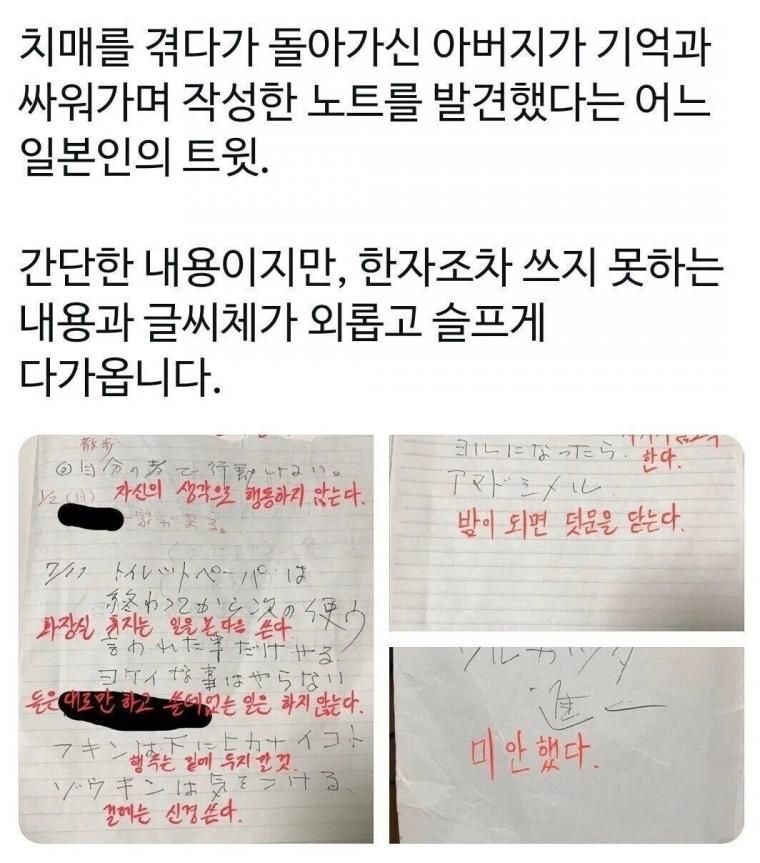 치매를 겪다가 돌아가신 아버지가 기억과
싸워가며 작성한 노트를 발견했다는 어느
일본인의 트윗.
간단한 내용이지만, 한자조차 쓰지 못하는
내용과 글씨체가 외롭고 슬프게
다가옵니다.
散歩
◎自分の考で行動しない。
1/2(月) 자신의 생각으로 행동하지 않는다.
が来る。
7/17 トイレットペーパーは
終わってから次の使う
화장실 휴지는 일을 본 다음 쓴다.
言われた事だけやる.
ヨケイな事はやらない
들은 대로만 하고 쓸데없는 일은 하지 않는다.
フキンは下にヒカナイコト
행주는 밑에 두지 말 것.
ゾウキンは気をつける、
걸레는 신경 쓴다.
ヨルになったら
한다.
アマドシメル
밤이 되면 덧문을 닫는다.
ワルカッタ
進一
미안했다.